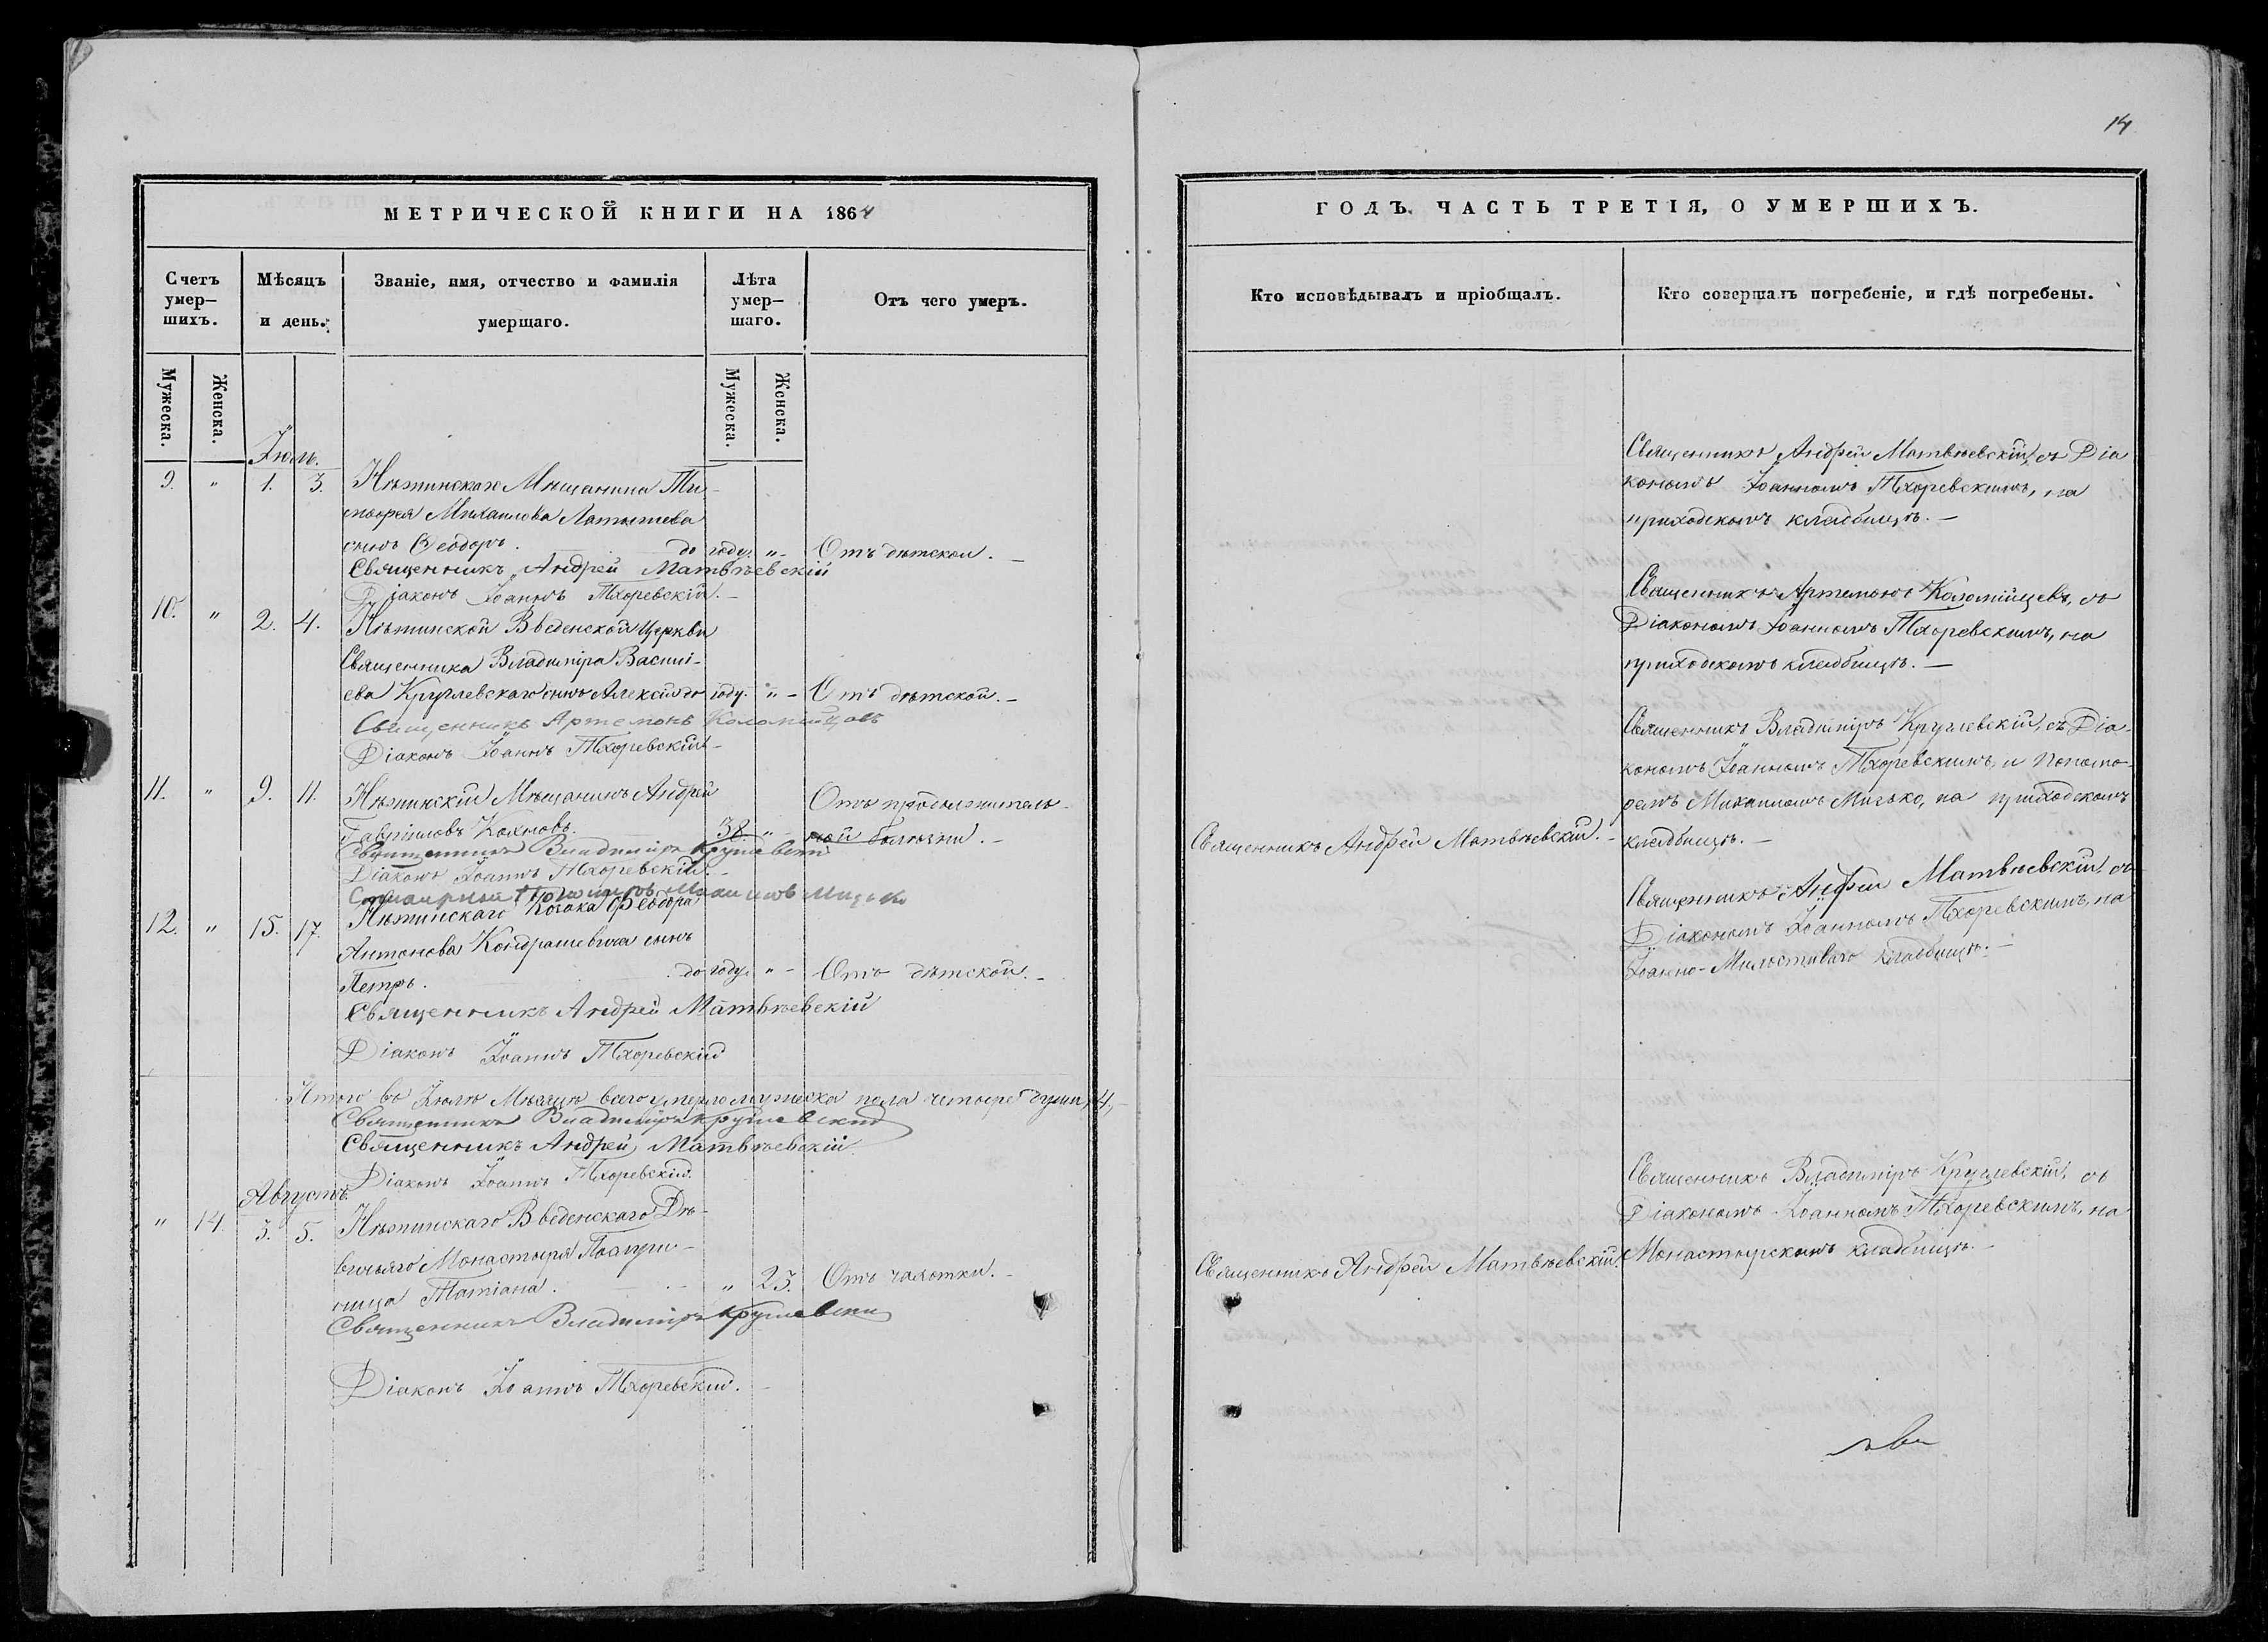 14
МЕТРИЧЕСКОЙ КНИГИ НА 1864
ГОДЪ. ЧАСТЬ ТРЕТІЯ, О УМЕРШИХЪ.
Счетъ умер-
шихъ.
Мѣсяцъ
и день.
Званіе, имя, отчество и фамилія
умершаго.
Лѣта
умер-
шаго.
Отъ чего умеръ.
Мужеска.
Женска.
Мужеска.
Женска.
Кто исповѣдывалъ и пріобщалъ.
Кто совершалъ погребеніе, и гдѣ погребены.
Іюль.
9. " 1. 3. Нѣжинскаго Мѣщанина Ти-
моѳея Михаилова
сынъ Ѳеодоръ. до году. " Отъ дѣтской.
Священникъ Андрей Матвѣевскій
Діаконъ Іоаннъ Тхоревскій.
Священникъ Андрей Матвѣевскій, съ Діа
кономъ Іоанномъ Тхоревскимъ, на
приходскомъ кладбищѣ.
10. " 2. 4. Нѣжинской Введенской Церкви
Священника Владиміра Васили-
ева Круглевскаго сынъ Алексій до году. " Отъ дѣтской.
Священникъ Артемонъ Коломійцовъ
Діаконъ Іоаннъ Тхоревскій
Священникъ Артемонъ Коломійцевъ, съ
Діакономъ Іоанномъ Тхоревскимъ, на
приходскомъ кладбищѣ.
11. " 9. 11. Нѣжинскій Мѣщанинъ Андрей
Гавріиловъ 38. " Отъ продолжитель-
ной болѣзни.
Священникъ Владиміръ Круглевскій
Діаконъ Іоаннъ Тхоревскій.
Пономарь Михаилъ Мицько
Священникъ Андрей Матвѣевскій.
Священникъ Владиміръ Круглевскій, съ Діа-
кономъ Іоанномъ Тхоревскимъ, и Понома-
ремъ Михаиломъ Мицько, на приходскомъ
кладбищѣ.
12. " 15. 17. Нѣжинскаго Козака Ѳеодора
Антонова Кондрашевича сынъ
Петръ. до году. " Отъ дѣтской.
Священникъ Андрей Матвѣевскій
Діаконъ Іоаннъ Тхоревскій
Священникъ Андрей Матвѣевскій съ
Діакономъ Іоанномъ Тхоревскимъ, на
Іоанно-Милостиваго кладбищѣ.
Итого въ Іюлѣ Мѣсяцѣ всего умерло мужеска пола четыре души, 4,
Священникъ Владиміръ Круглевскій
Священникъ Андрей Матвѣевскій
Діаконъ Іоаннъ Тхоревскій.
Августъ.
" 14. 3. 5. Нѣжинскаго Введенскаго Дѣ-
вичьяго Монастыря Послуш-
ница Татіана. " 25. Отъ чахотки.
Священникъ Владиміръ Круглевскій
Діаконъ Іоаннъ Тхоревскій.
Священникъ Андрей Матвѣевскій.
Священникъ Владиміръ Круглевскій, съ
Діакономъ Іоанномъ Тхоревскимъ, на
Монастырскомъ кладбищѣ.